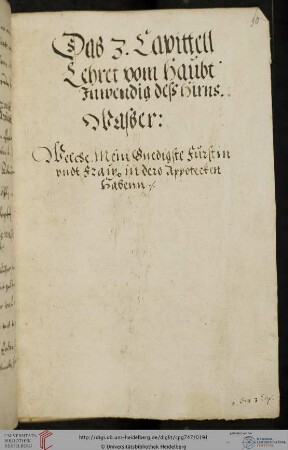 Das 3. Capittell
Lehret vom Haubt
Inwendig deß Hirns.
Waßer:
Welche Mein Gnedigste Fürstin
vndt Fraw, in dero Appotecken
Habenn
UNIVERSITÄTS-
BIBLIOTHEK
HEIDELBERG
http://digi.ub.uni-heidelberg.de/diglit/cpg747/0191
© Universitätsbibliothek Heidelberg